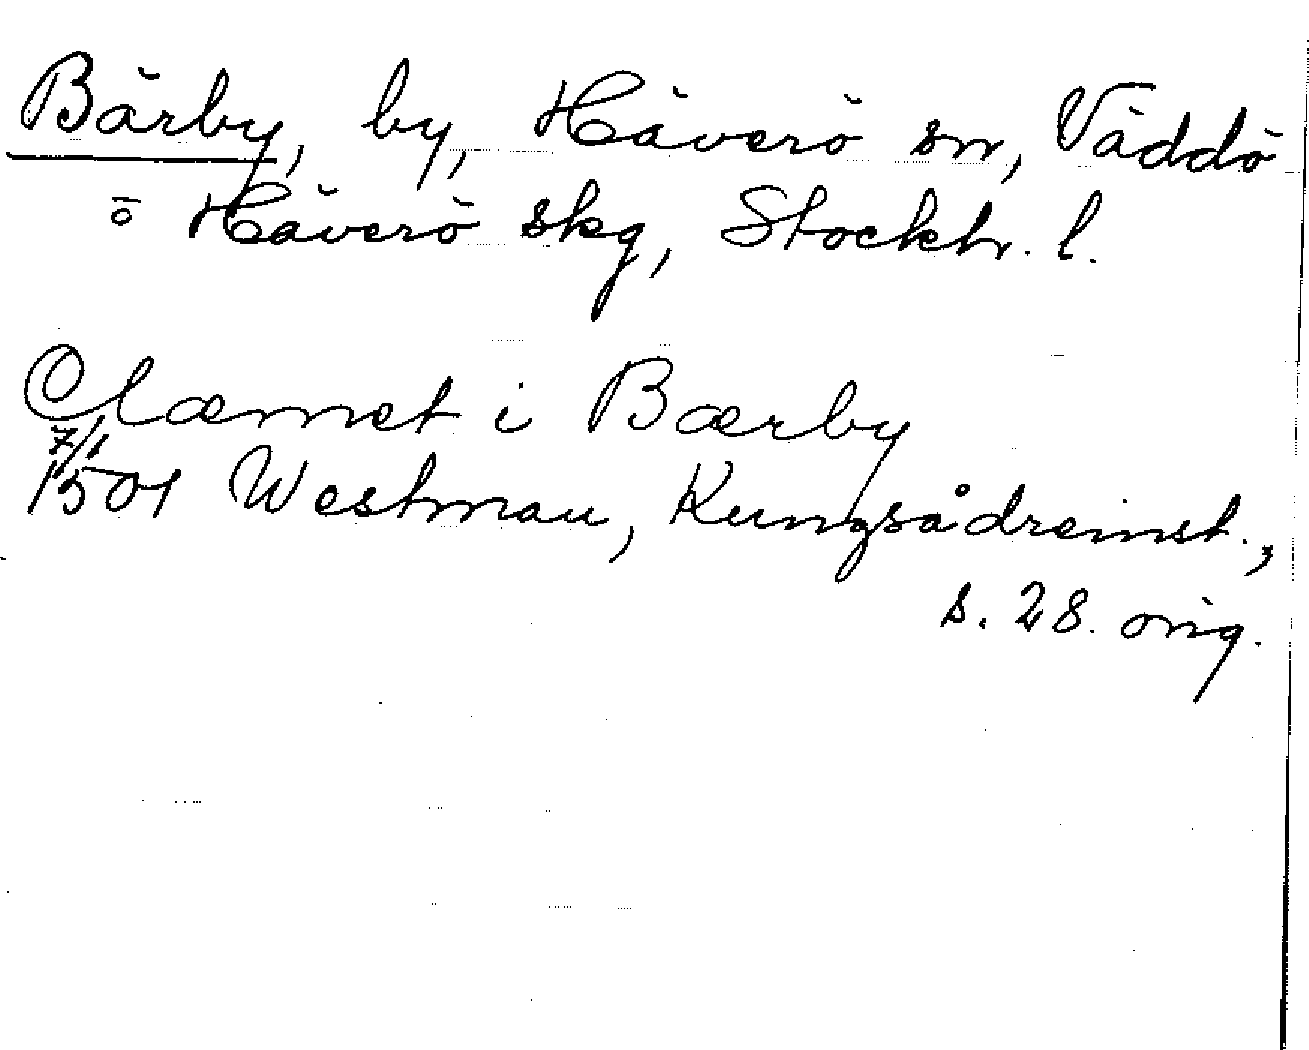 Bärby, by, Häverö sn, Väddö
o Häverö skg, Stockh. l.
Clæmet i Bærby
7/1
1501 Westman, Kungsådreinst.,
s. 28. orig.